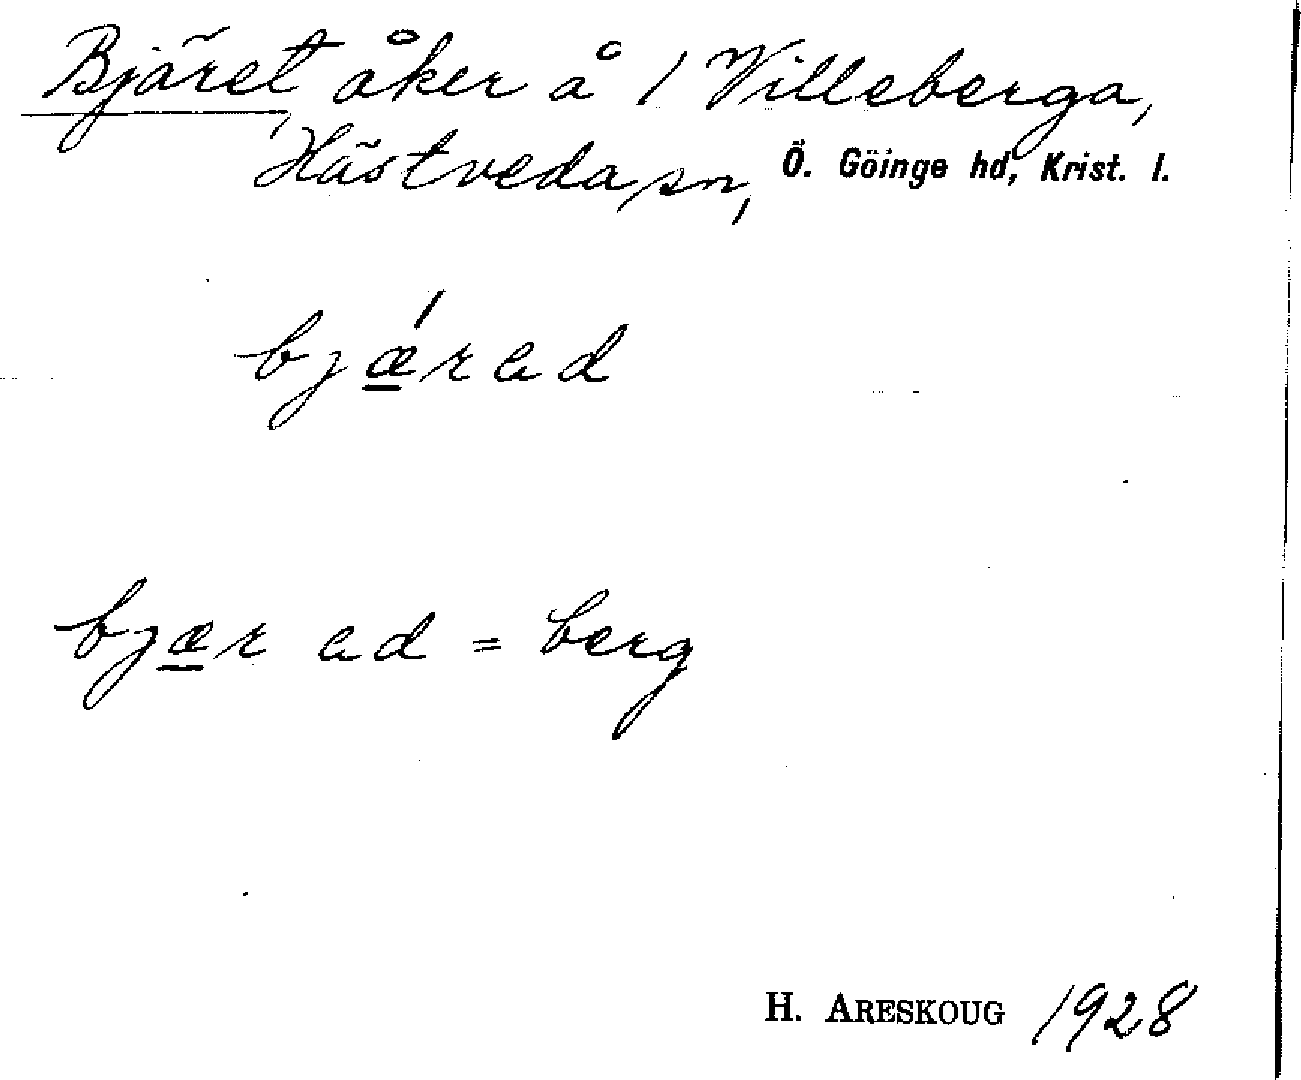 Bjäret, åker å 1 Villeberga,
Hästveda sn, Ö. Göinge hd, Krist. l.
bjǽ̲rad
bjæ̲r ad = berg
H. ARESKOUG 1928